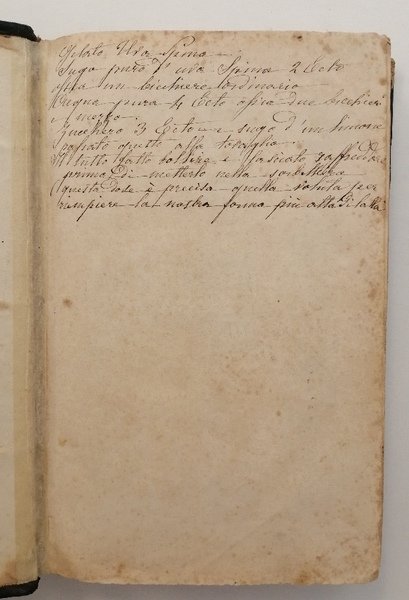 Gelato Uva Spina
Sugo puro d'uva Spina 2 Ecto
ossia un bicchiere ordinario
Acqua pura 4 Ecto ossia due bicchieri
e mezzo.
Zucchero 3 Ecto e sugo d'un limone
passato quello alla
Il tutto fatto bollire e lasciato raffreddare
prima di metterlo nella sorbettiera
questa dose è precisa quella voluta per
riempiere la nostra forma più alta di latta